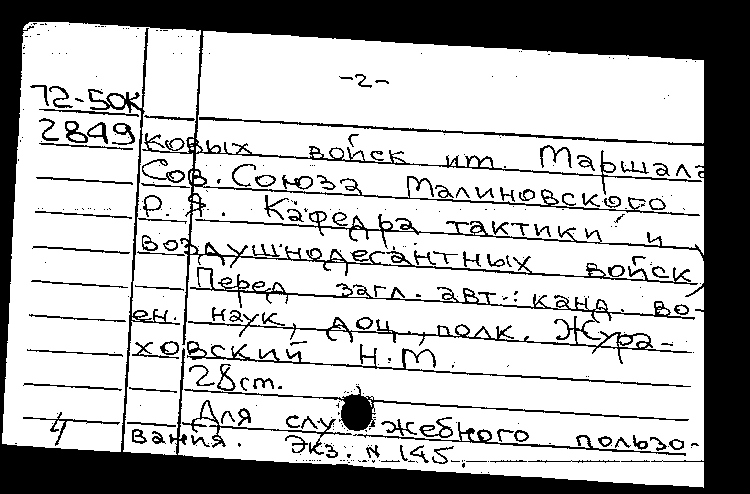 -2-
72-50К
2849 ковых войск им. Маршала
Сов. Союза Малиновского
Р. Я. Кафедра тактики и
воздушнодесантных войск)
Перед загл. авт.: канд. во-
ен. наук, доц., полк. Жура-
ховский Н.М.
28 ст.
Для служебного пользо-
4 вания. Экз. N 145.